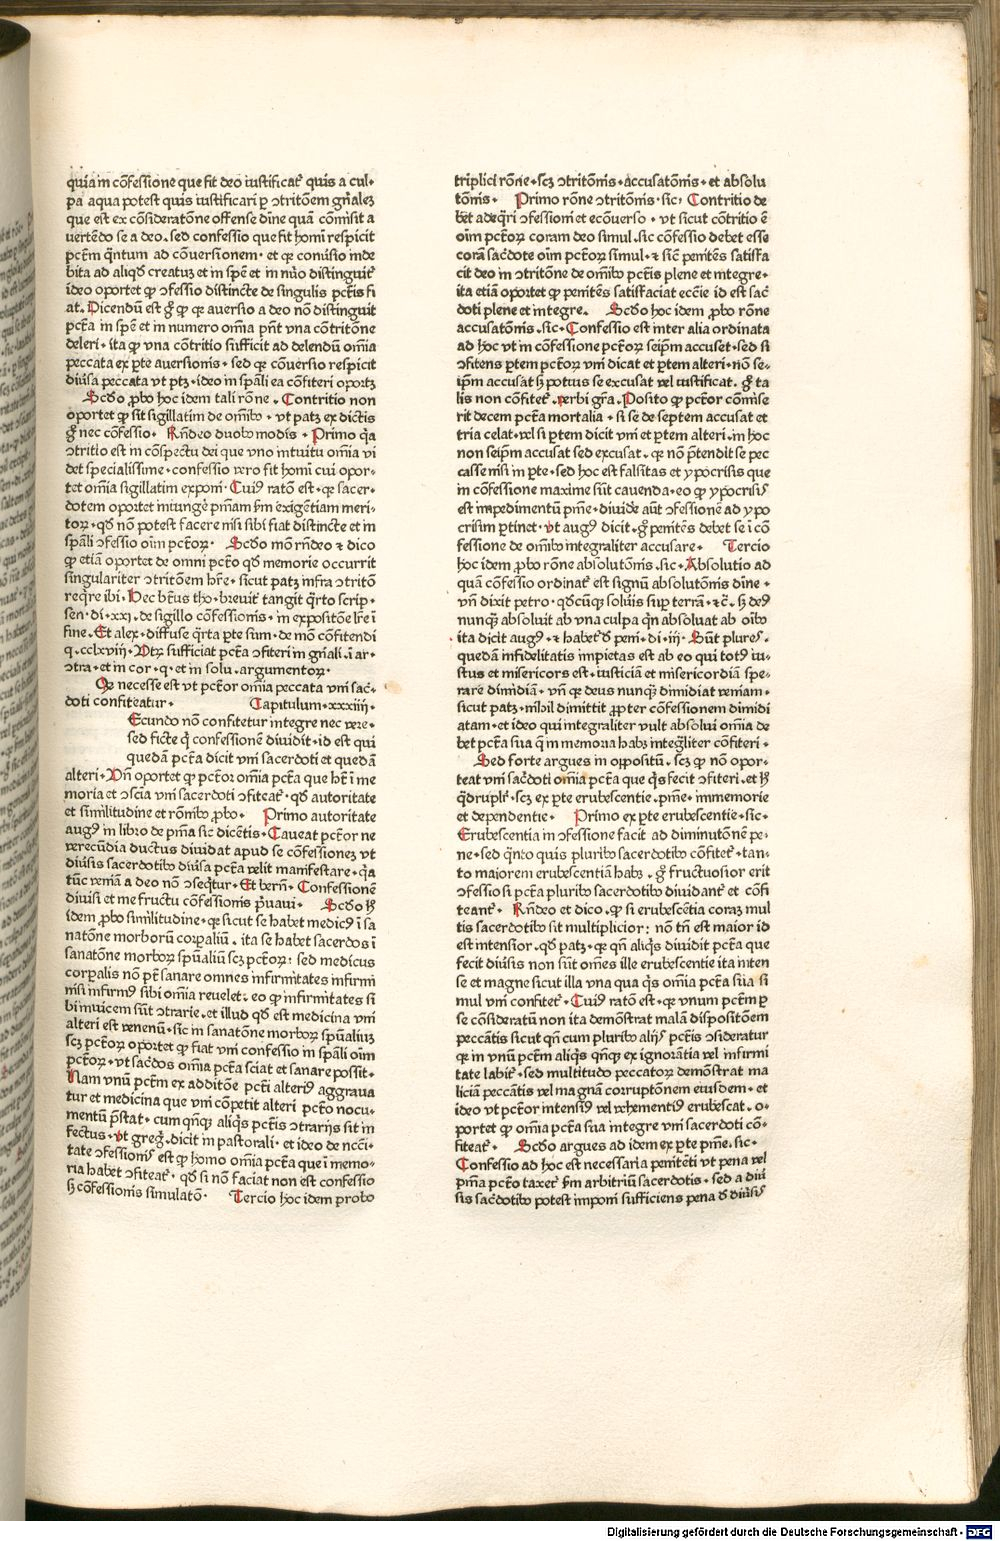 quia in cōfessione que fit deo iustificat᷑ quis a cul⸗
pa aqua potest quis iustificari ꝑ ꝯtritōem gn̄alez
que est ex cōsideratōne offense diīne quā cōmisit a
vertēdo se a deo. sed confessio que fit homi respicit
pctm̄ q̄ntum ad cōuersionem. et qꝛ conūsio inde
bita ad aliqd̄ creatuꝫ et in spē et in nūo distinguit᷑
ideo oportet ꝙ ꝯfessio distincte de singulis pctīs fi
at. Dicendū est gͦ ꝙ qꝛ auersio a deo nō distinguit
pctā in spē et in numero omīa pn̄t vna cōtritōne
deleri. ita ꝙ vna cōtritio sufficit ad delendū omīa
peccata ex ꝑte auersionis. sed qꝛ cōuersio respicit
diūsa peccata vt ptꝫ. ideo in spāli ea cōfiteri oportꝫ
Scd̄o ꝓbo hoc idem tali rōne. Contritio non
oportet ꝙ sit sigillatim de omībꝰ. vt patꝫ ex dictis
gͦ nec cōfessio. Rn̄deo duobꝰ modis. Primo q̄a
ꝯtritio est in cōspectu dei que vno intuitu omīa vi
det specialissime. confessio vero fit homi cui opor⸗
tet omīa sigillatim exponi. Cuiꝰ ratō est. qꝛ sacer⸗
dotem oportet iniungē pniam s̄m exigētiam meri⸗
torꝝ. qd̄ nō potest facere nisi sibi fiat distincte et in
spāli ꝯfessio oīm pctōrꝝ. Scd̄o mō rn̄deo ⁊ dico
ꝙ etiā oportet de omni pctō qd̄ memorie occurrit
singulariter ꝯtritōem hr̄e. sicut patꝫ infra ꝯtritō
reqͥre ibi. Hec bt̄us tho. breuit᷑ tangit q̄rto scrip⸗
sen. di. xxi. de sigillo cōfessionis. in expositōe lr̄e ī
fine. Et alex. diffuse q̄rta ꝑte sum̄. de mō cōfitendi
q. cclxviii. Vtꝝ sufficiat pctā ꝯfiteri in gn̄ali. ī ar⸗
ꝯtra. et in cor. q. et in solu. argumentorꝝ.
Qꝙ necesse est vt pctōr omīa peccata vni sac̄⸗
doti confiteatur. Capitulum. xxxiiij.
Ecundo nō confitetur integre nec vere.
sed ficte qͥ confessionē diuidit. id est qui
quedā pctā dicit vni sacerdoti et quedā
alteri. Vn̄ oportet ꝙ pctōr omīa pctā que hꝫ ī me
moria et ꝯscīa vni sacerdoti ꝯfiteat᷑. qd̄ autoritate
et similitudine et rōnibꝰ ꝓbo. Primo autoritate
augꝰ in libro de pnīa sic dicētis. Caueat pctōr ne
verecūdia ductus diuidat apud se cōfessioneꝫ vt
diūsis sacerdotibꝰ diūsa pctā velit manifestare. q̄a
tūc veniā a deo nō ꝯseqͥtur. Et bern̄. Confessionē
diuisi et me fructu cōfessionis pͥuaui. Scd̄o hͦ
idem ꝓbo similitudine. qꝛ sicut se habet medicꝰ ī sa
natōne morborū corꝑaliū. ita se habet sacerdos ī
sanatōne morborꝝ spūaliū scꝫ pctōrꝝ: sed medicus
corꝑalis nō pōt sanare omnes infirmitates infirmi
nisi infirmꝰ sibi omīa reuelet. eo ꝙ infirmitates si
bi inuicem sūt ꝯtrarie. et illud qd̄ est medicina vni
alteri est venenū. sic in sanatōne morborꝝ spūaliuꝫ
scꝫ pctōrꝝ oportet ꝙ fiat vni confessio in spāli oīm
pctōrꝝ. vt sac̄dos omīa pctā sciat et sanare possit.
Nam vnū pctm̄ ex additōe pctī alteriꝰ aggraua
tur et medicina que vni cōpetit alteri pctō nocu⸗
mentū p̄stat. cum qn̄qꝫ aliqͥs pctīs ꝯtrarijs sit in
fectus. Vt gregꝰ. dicit in pastorali. et ideo de ncc̄i⸗
tate ꝯfessionis est ꝙ homo omīa pctā que ī memo⸗
ria habet ꝯfiteat᷑. qd̄ si nō faciat non est confessio
sꝫ cōfessionis simulatō. Tercio hoc idem probo
triplici rōne. scꝫ ꝯtritōnis. accusatōnis. et absolu
tōnis. Primo rōne ꝯtritōnis. sic: Contritio de
bet adeqͣri ꝯfessioni et ecōuerso. vt sicut cōtritio ē
oīm pctōrꝝ coram deo simul. sic cōfessio debet esse
corā sac̄dote oīm pctōrꝝ simul. ⁊ sic̄ penitēs satisfa
cit deo in ꝯtritōne de omībꝰ pctīs plene et integre.
ita etiā oportet ꝙ penitēs satisfaciat eccīe id est sac̄
doti plene et integre. Scd̄o hoc idem ꝓbo rōne
accusatōnis. sic. Confessio est inter alia ordinata
ad hoc vt in cōfessione pctōrꝝ seipm̄ accuset. sed si
ꝯfitens ꝑtem pctōrꝝ vni dicat et ꝑtem alteri. nō se⸗
ipm̄ accusat sꝫ potius se excusat vel iustificat. gͦ ta
lis non cōfitet᷑. verbi gr̄a. Posito ꝙ pctōr cōmise
rit decem pctā mortalia. si se de septem accusat et
tria celat. vel si ꝑtem dicit vni et ꝑtem alteri. in hoc
non seipm̄ accusat sed excusat. qꝛ nō p̄tendit se pec
casse nisi in ꝑte. sed hoc est falsitas et ypocrisis que
in cōfessione maxime sūt cauenda. eo ꝙ ypocrisis
est impedimentū pnīe. diuide aūt ꝯfessionē ad ypo
crisim ꝑtinet. Vt augꝰ dicit. gͦ penitēs debet se ī cō
fessione de omībꝰ integraliter accusare. Tercio
hoc idem ꝓbo rōne absolutōnis. sic. Absolutio ad
quā confessio ordinat᷑ est signū absolutōnis diīne.
vn̄ dixit petro. qd̄cūqꝫ solūis suꝑ terrā. ⁊c̄. sꝫ deꝰ
nunqꝫ absoluit ab vna culpa qn̄ absoluat ab oībꝰ
ita dicit augꝰ. ⁊ habet᷑ d̄ peni. di. iij. Sūt plures.
quedā infidelitatis impietas est ab eo qui totꝰ iu⸗
stus et misericors est. iusticiā et misericordiā spe⸗
rare dimidiā. vn̄ qꝛ deus nunqꝫ dimidiat veniam.
sicut patꝫ. nihil dimittit ꝓpter cōfessionem dimidi
atam. et ideo qui integraliter vult absolui omīa de
bet pctā sua q̄ in memoria habꝫ integͣliter cōfiteri.
Sed forte argues in oppositū. scꝫ ꝙ nō opor⸗
teat vni sac̄doti omīa pctā que qͥs fecit ꝯfiteri. et hͦ
qͣdrupłr. scꝫ ex ꝑte erubescentie. pnīe. immemorie
et dependentie. Primo ex ꝑte erubescentie. sic.
Erubescentia in ꝯfessione facit ad diminutōnē pe⸗
ne. sed qͣnto quis pluribꝰ sacerdotibꝰ cōfitet᷑. tan⸗
to maiorem erubescentiā habꝫ. gͦ fructuosior erit
ꝯfessio si pctā pluribꝰ sacerdotibꝰ diuidant᷑ et cōfi
teant᷑. Rn̄deo et dico. ꝙ si erubescētia coraꝫ mul
tis sacerdotibꝰ sit multiplicior: nō tn̄ est maior id
est intensior. qd̄ patꝫ. qꝛ qn̄ aliqͥs diuidit pctā que
fecit diūsis non sūt om̄es ille erubescentie ita inten
se et magne sicut illa vna qua qͥs omīa pctā sua si
mul vni confitet᷑. Cuiꝰ ratō est. qꝛ vnum pctm̄ ꝑ
se cōsideratū non ita demōstrat malā dispositōem
peccātis sicut qn̄ cum pluribꝰ alijs pctīs ꝯsideratur
qꝛ in vnū pctm̄ aliqͥs qn̄qꝫ ex ignorātia vel infirmi
tate labit᷑. sed multitudo peccatorꝝ demōstrat ma
liciā peccātis vel magnā corruptōnem eiusdem. et
ideo vt pctōr intensiꝰ vel vehementiꝰ erubescat. o⸗
portet ꝙ omīa pctā sua integre vni sacerdoti cō⸗
fiteat᷑. Scd̄o argues ad idem ex ꝑte pnīe. sic.
Confessio ad hoc est necessaria penitēti vt pena vel
pnīa pctō taxet᷑ s̄m arbitriū sacerdotis. sed a diū
sis sac̄dotibꝰ potest imponi sufficiens pena d̄ diūsis
Digitalisierung gefördert durch die Deutsche Forschungsgemeinschaft - DFG